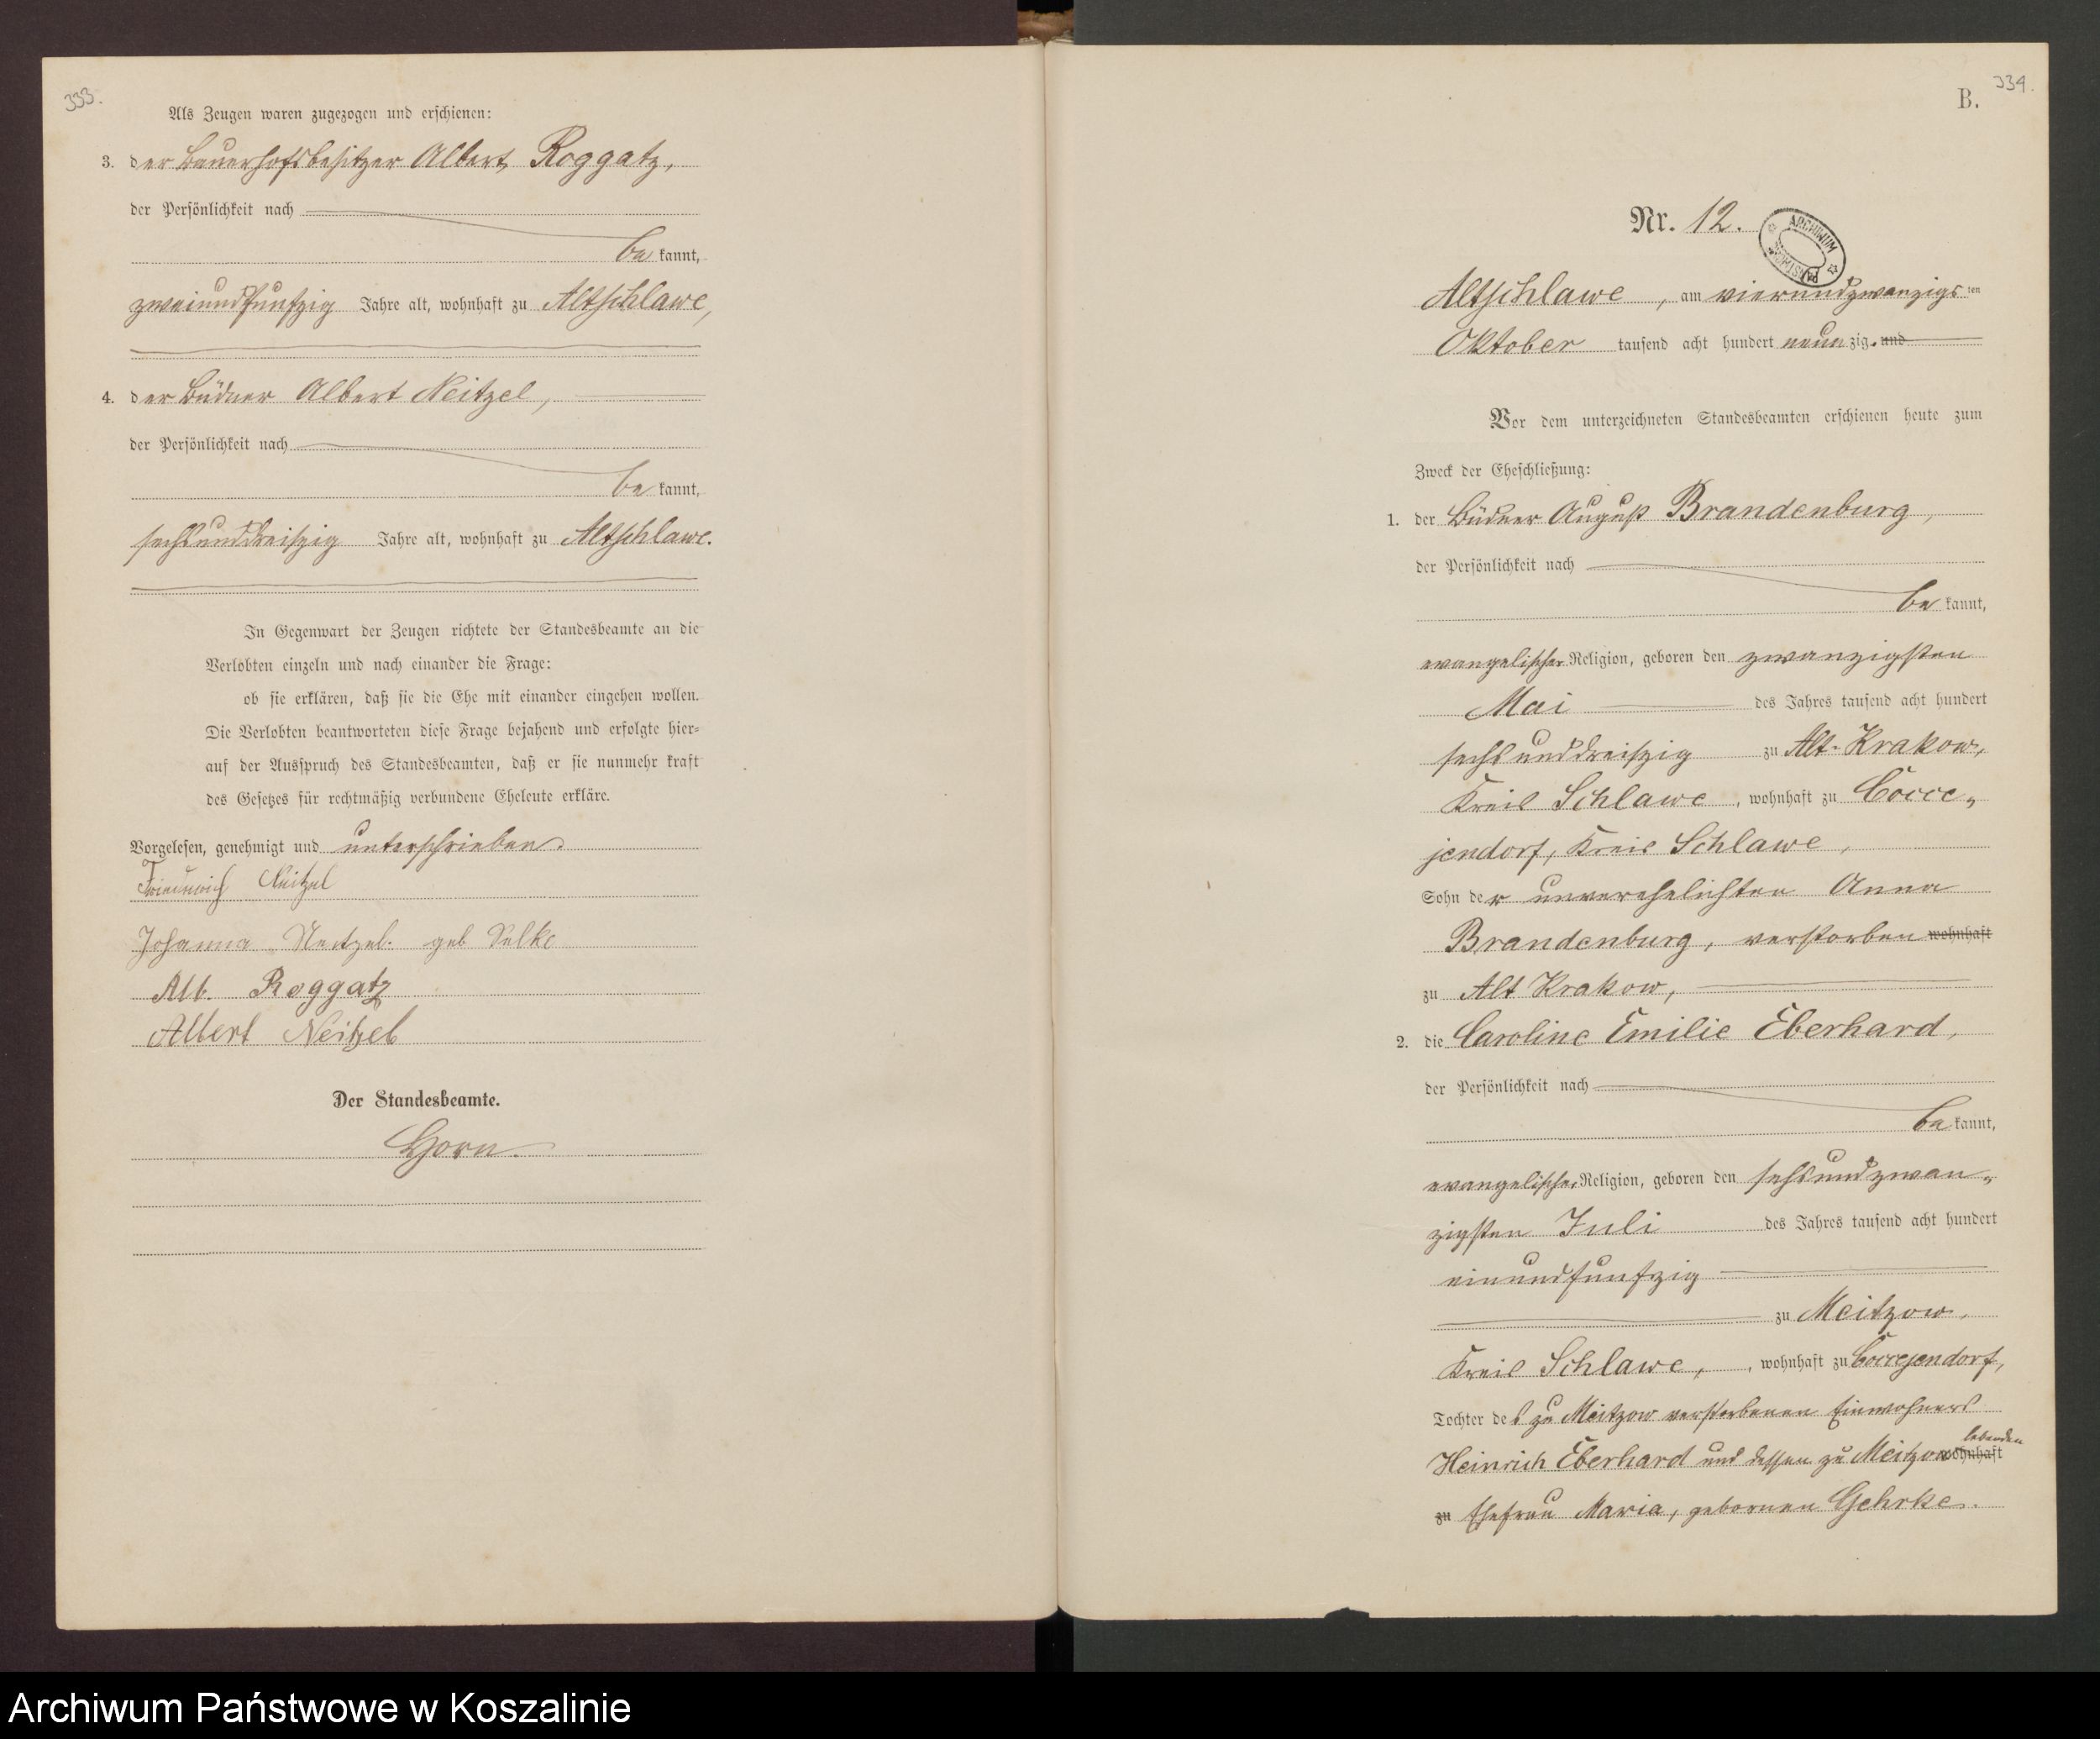 333.
Als Zeugen waren zugezogen und erschienen:
3. der Bauerhofsbesitzer Albert Roggatz,
der Persönlichkeit nach
bekannt,
zweiundfunfzig Jahre alt, wohnhaft zu Altschlawe,
4. der Büdner Albert Neitzel,
der Persönlichkeit nach
bekannt,
sechsunddreiszig Jahre alt, wohnhaft zu Altschlawe.
In Gegenwart der Zeugen richtete der Standesbeamte an die
Verlobten einzeln und nach einander die Frage:
ob sie erklären, daß sie die Ehe mit einander eingehen wollen.
Die Verlobten beantworteten diese Frage bejahend und erfolgte hier-
auf der Ausspruch des Standesbeamten, daß er sie nunmehr kraft
des Gesetzes für rechtmäßig verbundene Eheleute erkläre.
Vorgelesen, genehmigt und unterschrieben.
Friedrich Neitzel
Johanna Neitzel. geb Selke
Alb. Roggatz
Albert Neitzel
Der Standesbeamte.
Horn.
334.
B.
Nr. 12.
ARCHIWUM
Altschlawe, am vierundzwanzigsten
Oktober tausend acht hundert neunzig. und
Vor dem unterzeichneten Standesbeamten erschienen heute zum
Zweck der Eheschließung:
1. der Büdner August Brandenburg,
der Persönlichkeit nach
bekannt,
evangelischer Religion, geboren den zwanzigsten
Mai des Jahres tausend acht hundert
sechsunddreiszig zu Alt-Krakow,
Kreis Schlawe, wohnhaft zu Cocce-
jendorf, Kreis Schlawe,
Sohn der unverehelichten Anna
Brandenburg, verstorben wohnhaft
zu Alt Krakow,
2. die Caroline Emilie Eberhard,
der Persönlichkeit nach
bekannt,
evangelischer Religion, geboren den sechsundzwan-
zigsten Juli des Jahres tausend acht hundert
einundfunfzig
zu Meitzow,
Kreis Schlawe, wohnhaft zu Coccejendorf,
Tochter des zu Meitzow verstorbenen Einwohners
Heinrich Eberhard und dessen zu Meitzow wohnhaft lebenden
zu Ehefrau Maria, gebornen Gehrke.
Archiwum Państwowe w Koszalinie